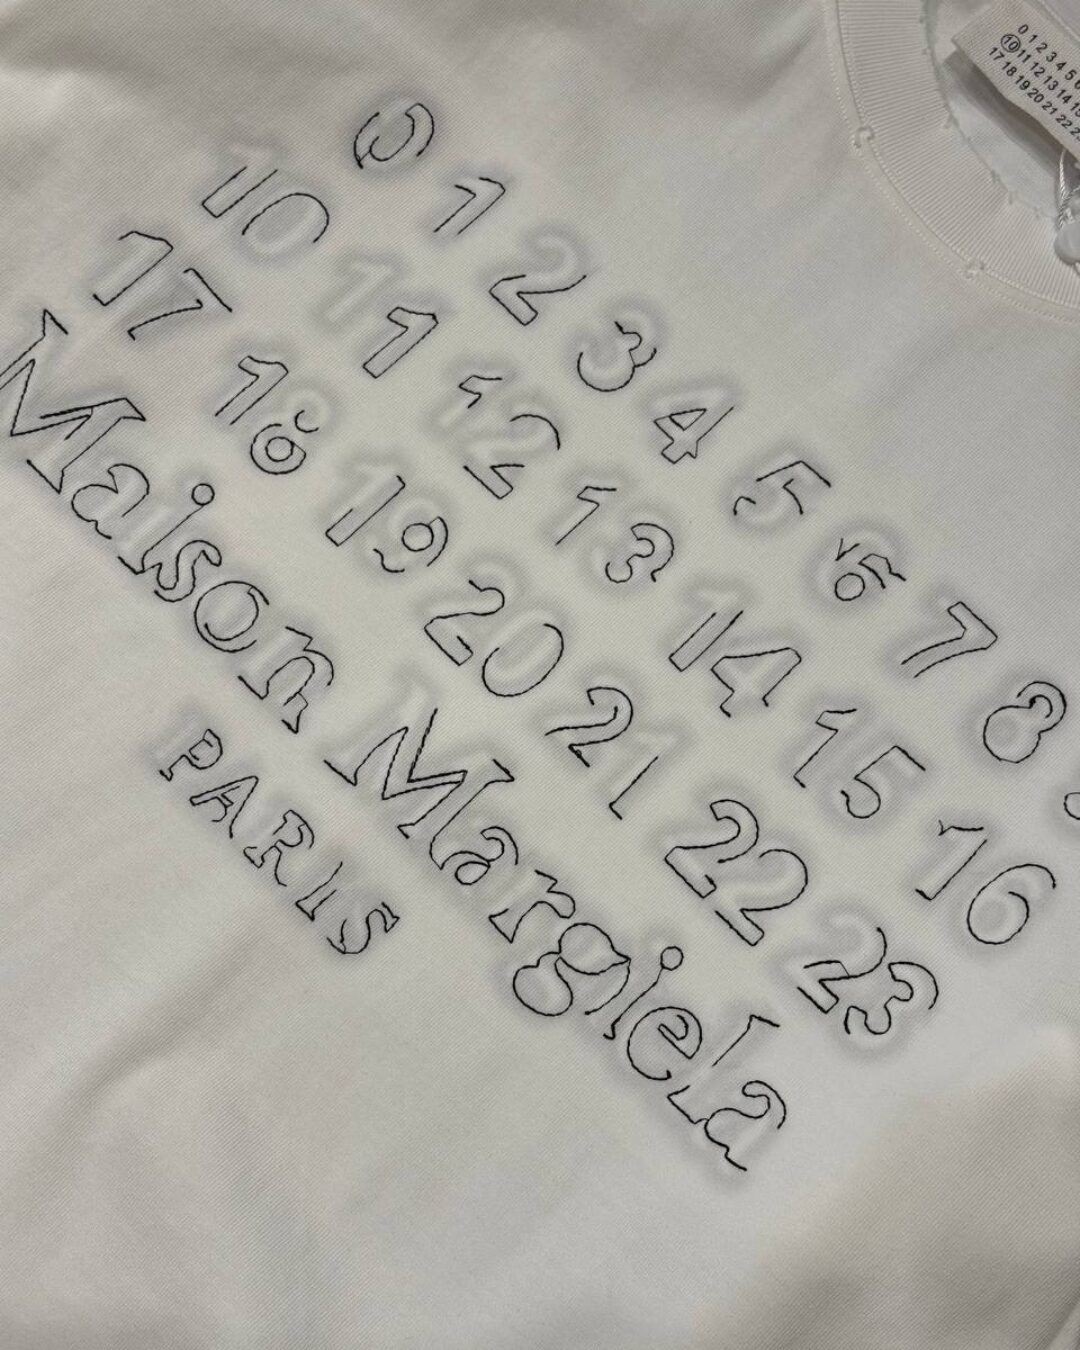 0 1 2 3 4 5 6 7 8
10 11 12 13 14 15 16
17 18 19 20 21 22 23
Maison Margiela
PARIS
0 1 2 3 4 5 6
10 11 12 13 14 15
17 18 19 20 21 22